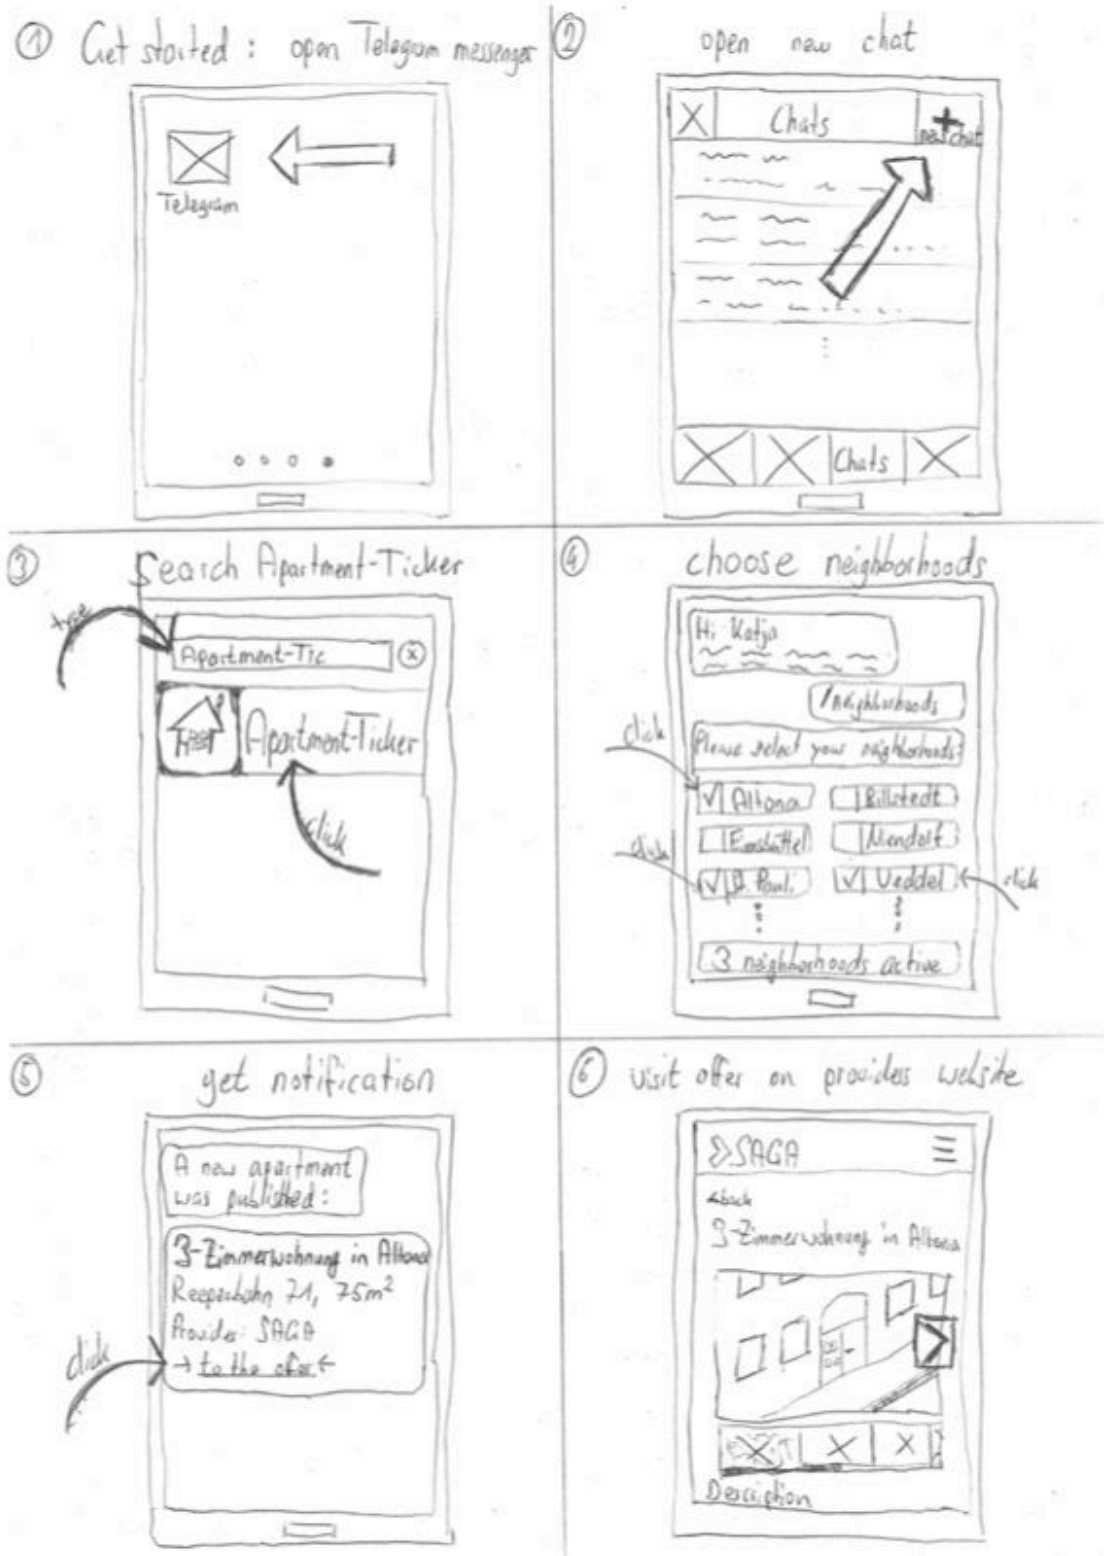 1 Get started: open Telegram messenger
Telegram
2 open new chat
Chats
+
new chat
Chats
3 Search Apartment-Ticker
type
Apartment-Tic
x
Apartment-Ticker
click
4 choose neighborhoods
Hi Katja
/neighborhoods
Please select your neighborhoods:
click
Altona
Billstedt
Eimsbüttel
Niendorf
click
St. Pauli
Veddel
click
3 neighborhoods active
5 get notification
A new apartment
was published:
3-Zimmerwohnung in Altona
Reeperbahn 71, 75m²
Provider: SAGA
click
→ to the offer ←
6 visit offer on providers website
SAGA
back
3-Zimmerwohnung in Altona
Description